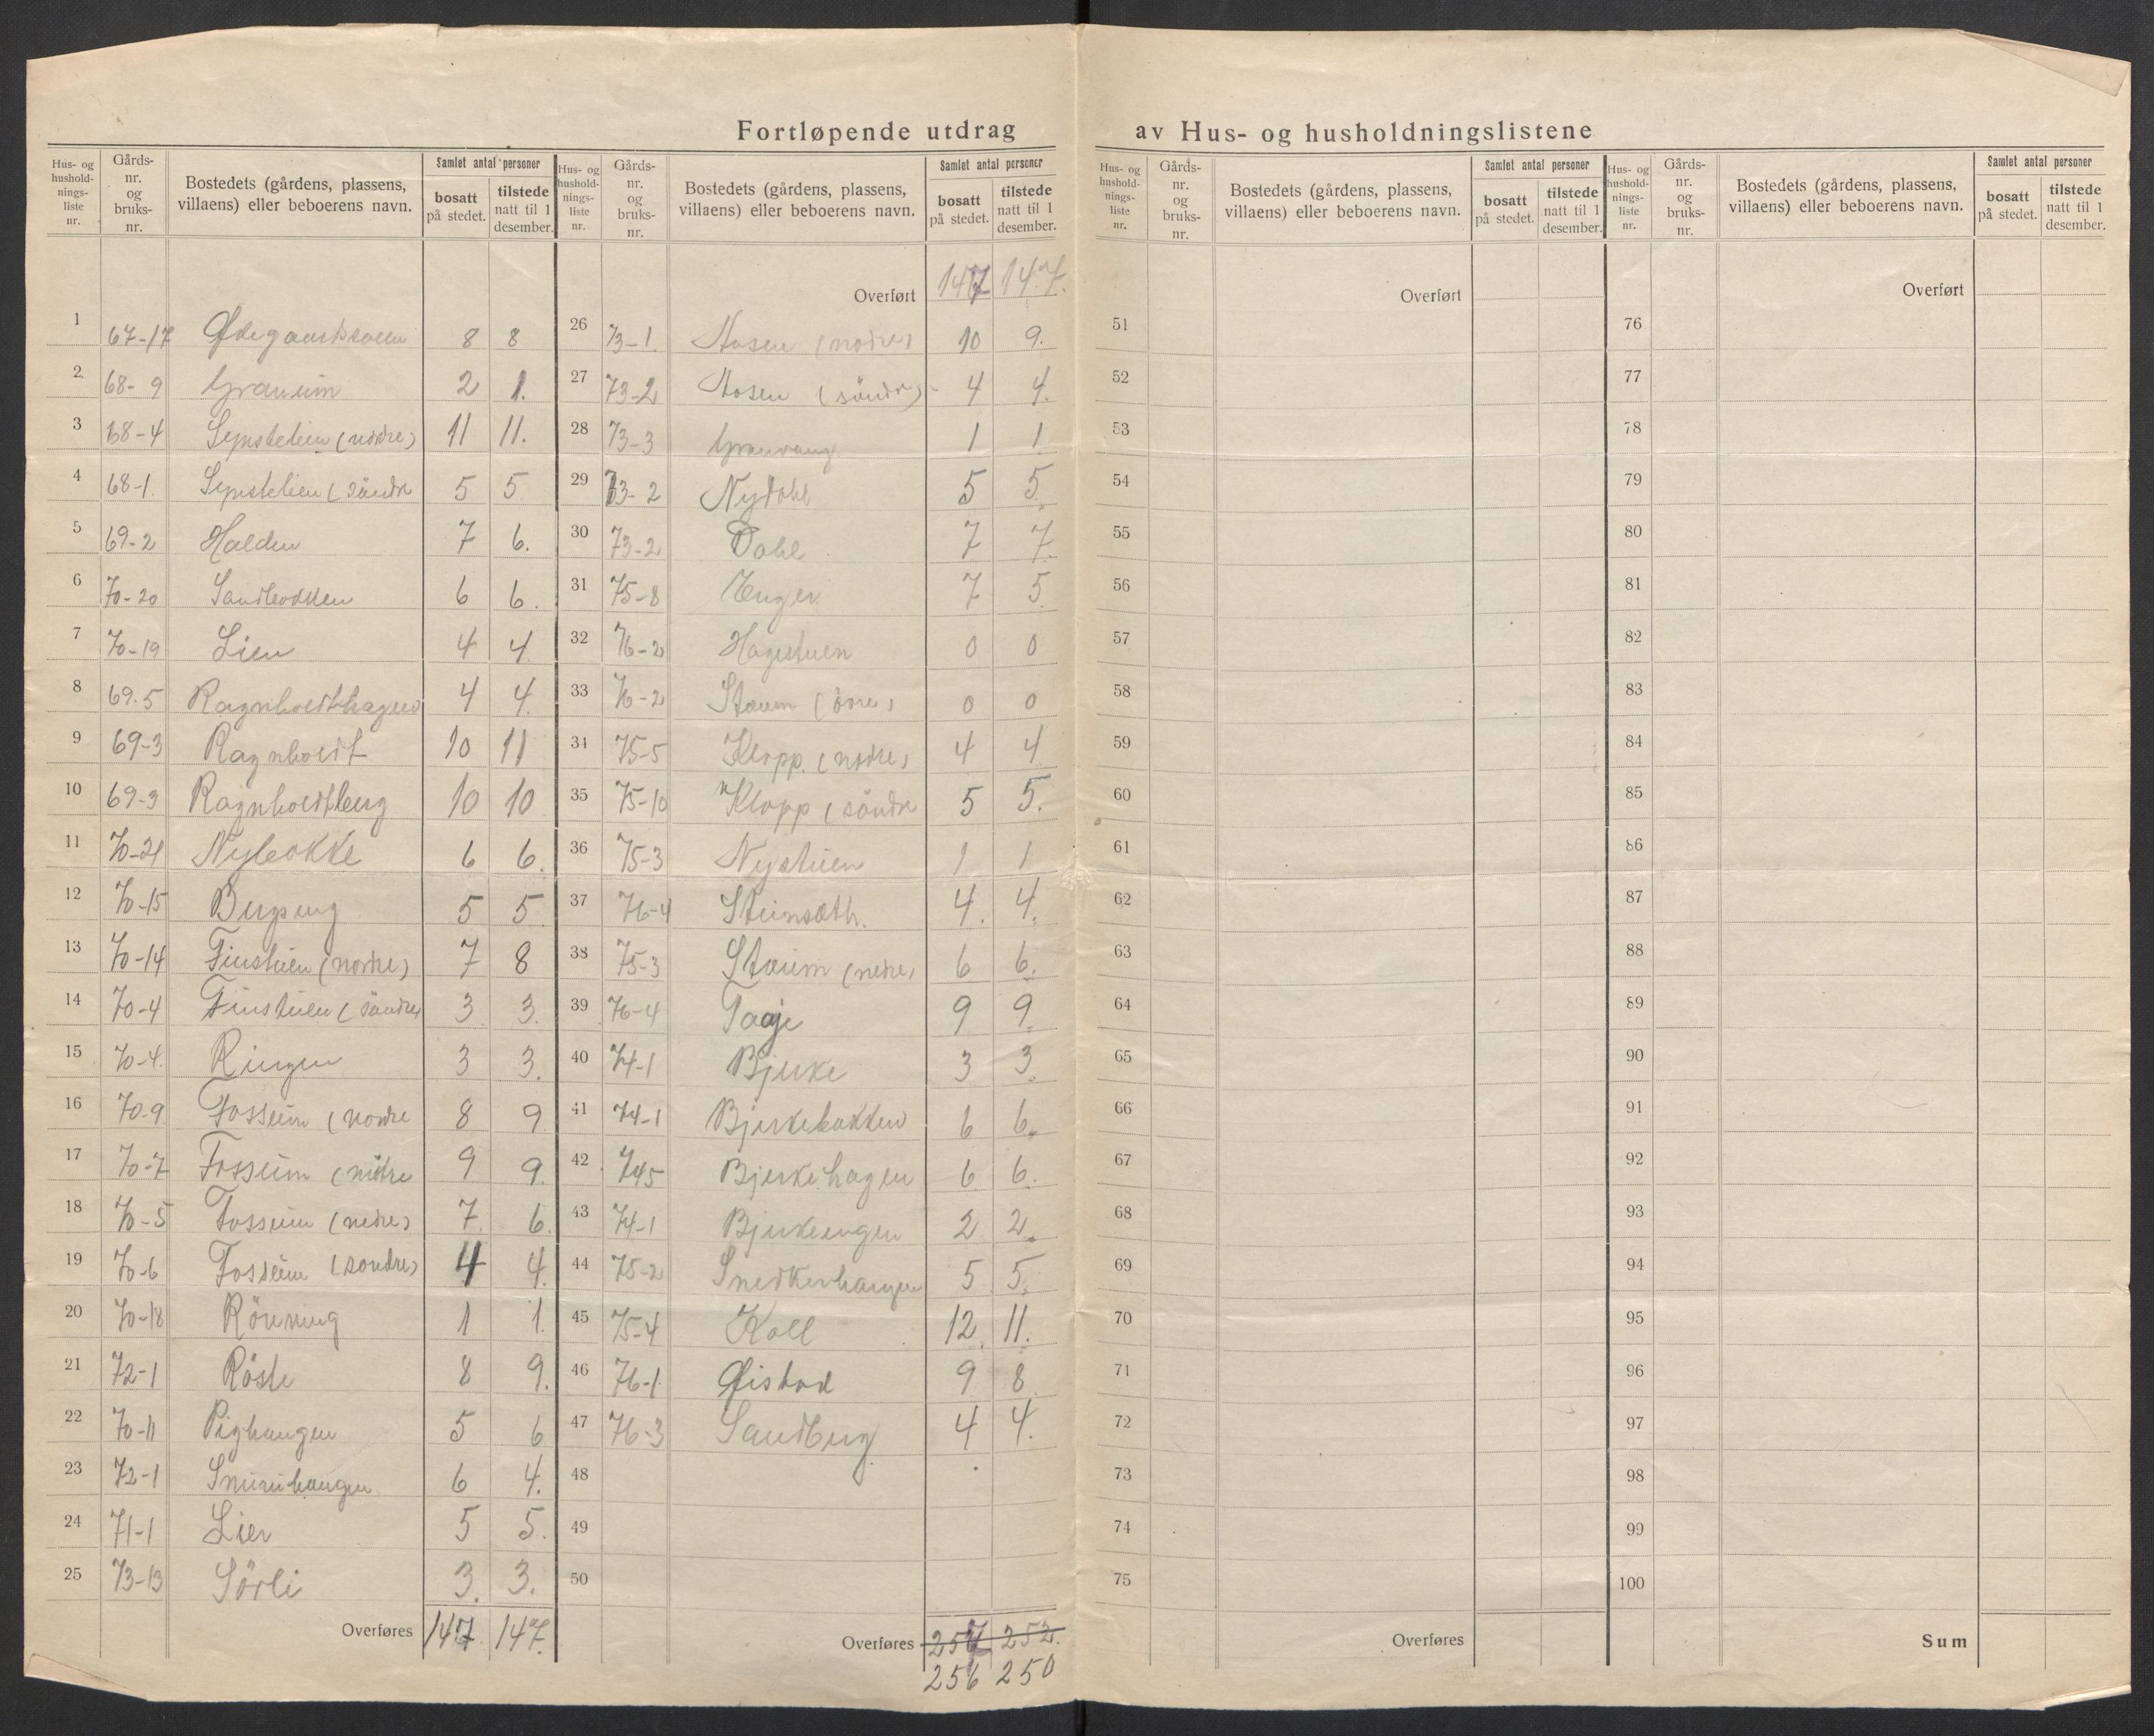 Fortløpende utdrag av Hus- og husholdningslistene
Hus- og husholdningsliste nr. | Gårds-nr. og bruks-nr. | Bostedets (gårdens, plassens, villaens) eller beboerens navn. | Samlet antal personer | bosatt på stedet. | tilstede natt til 1 desember.
1 67-17 Ødegaardssveen 8 8
2 68-9 Granum 2 1.
3 68-4 Synstelien (nordre) 11 11.
4 68-1. Synstelien (söndre 5 5
5 69-2 Halden 7 6.
6 70-20 Sandbakken 6 6.
7 70-19 Lien 4 4
8 69.5 Ragnholdthagen 4 4.
9 69-3 Ragnholdt 10 11
10 69-3 Ragnholdtberg 10 10
11 70-21 Nybakke 6 6.
12 70-15 Bergeng 5 5
13 70-14 Finstuen (nordre) 7 8
14 70-4 Finstuen (söndre) 3 3.
15 70-4. Ringen 3 3.
16 70-9 Fosseim (nordre 8 9
17 70-7 Fosseim (midtre 9 9.
18 70-5 Fosseim (nedre) 7. 6.
19 70-6 Fosseim (söndre) 4 4.
20 70-18 Rönning 1 1.
21 72-1 Röste 8 9.
22 70-11 Pighaugen 5 6
23 72-1 Snuruhaugen 6 4.
24 71-1 Lier 5 5.
25 73-13 Sörli 3. 3.
Overføres 147. 147.
Hus- og husholdningsliste nr. | Gårds-nr. og bruks-nr. | Bostedets (gårdens, plassens, villaens) eller beboerens navn. | Samlet antal personer | bosatt på stedet. | tilstede natt til 1 desember.
Overført 147 147.
26 73-1. Aasen (nordre) 10 9.
27 73-2 Aasen (söndre) 4 4.
28 73-3 Granvang 1 1.
29 73-2 Nydahl 5 5.
30 73-2 Dahl 7 7.
31 75-8 Enger 7 5
32 76-2 Hagestuen 0 0
33 76-2 Staum (övre) 0 0
34 75-5 Klopp (nordre) 4 4
35 75-10 Klopp (söndre 5 5.
36 75-3 Nystuen 1 1
37 76-4 Steinsæth. 4. 4.
38 75-3 Staum (nedre) 6 6.
39 76-4 Taaje 9 9.
40 74-1 Bjerke 3 3.
41 74-1 Bjerkebakken 6 6.
42 745 Bjerkehagen 6 6.
43 74-1 Bjerkeengen 2 2.
44 75-2 Snedkerhaugen 5 5.
45 75-4 Koll 12. 11.
46 76-1 Øistad 9 8
47 76-3 Sandberg 4 4.
48
49
50
Overføres 257 252.
256 250
Hus- og husholdningsliste nr. | Gårds-nr. og bruks-nr. | Bostedets (gårdens, plassens, villaens) eller beboerens navn. | Samlet antal personer | bosatt på stedet. | tilstede natt til 1 desember.
Overført
51
52
53
54
55
56
57
58
59
60
61
62
63
64
65
66
67
68
69
70
71
72
73
74
75
Overføres
Hus- og husholdningsliste nr. | Gårds-nr. og bruks-nr. | Bostedets (gårdens, plassens, villaens) eller beboerens navn. | Samlet antal personer | bosatt på stedet. | tilstede natt til 1 desember.
Overført
76
77
78
79
80
81
82
83
84
85
86
87
88
89
90
91
92
93
94
95
96
97
98
99
100
Sum